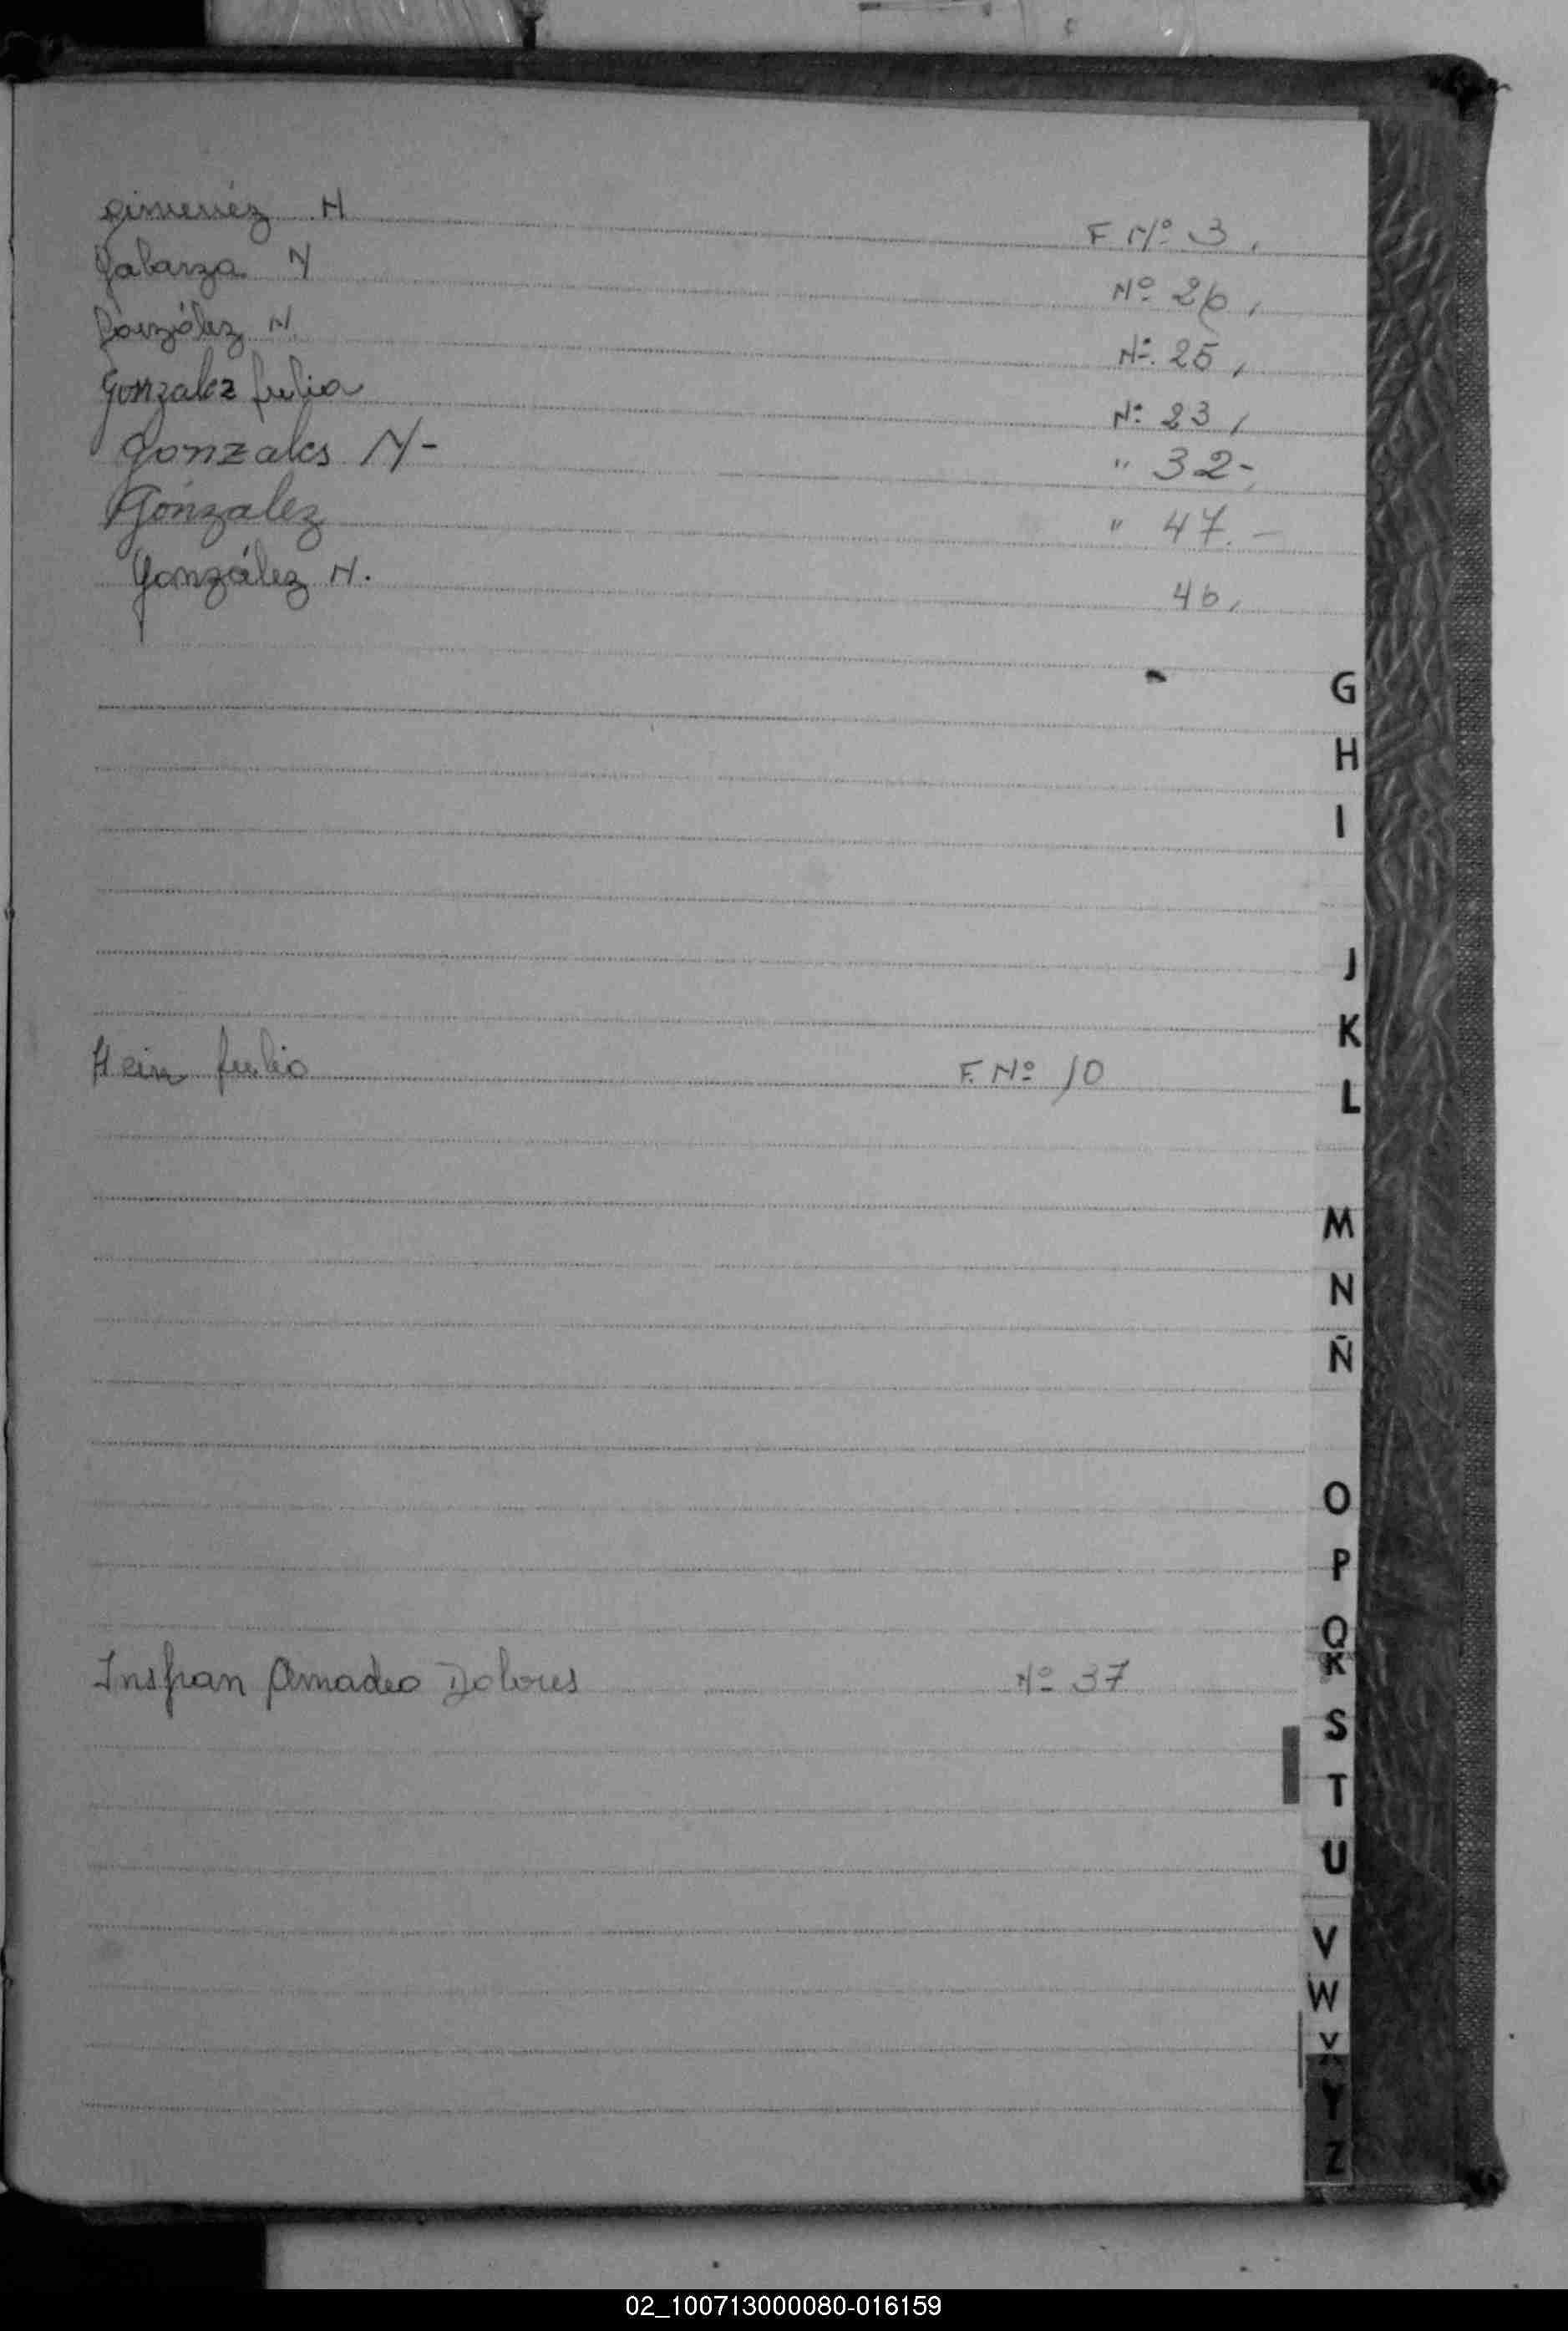 Gimenéz N F Nº 3,
Galarza N Nº 26,
González N. Nº. 25,
Gonzalez Julia Nº 23,
Gonzales N- " 32-,
Gónzalez " 47.-
González N. 46,
G
H
I
J
K
Hein Julio F. Nº 10
L
M
N
Ñ
O
P
Q
Insfran Amadeo Dolores Nº 37
S
T
U
V
W
X
Y
Z
02_100713000080-016159